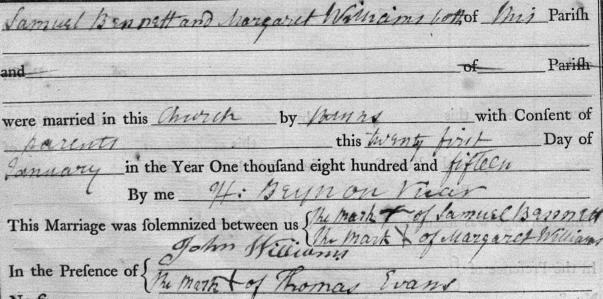 Samuel Bennett and Margaret Williams both of this Parish
and of Parish
were married in this Church by Banns with Consent of
Parents this twenty first Day of
January in the Year One thousand eight hundred and fifteen
By me H: Beynon Vicar
This Marriage was solemnized between us { The mark + of Samuel Bennett
The mark + of Margaret Williams
John Williams
In the Presence of {
The mark + of Thomas Evans